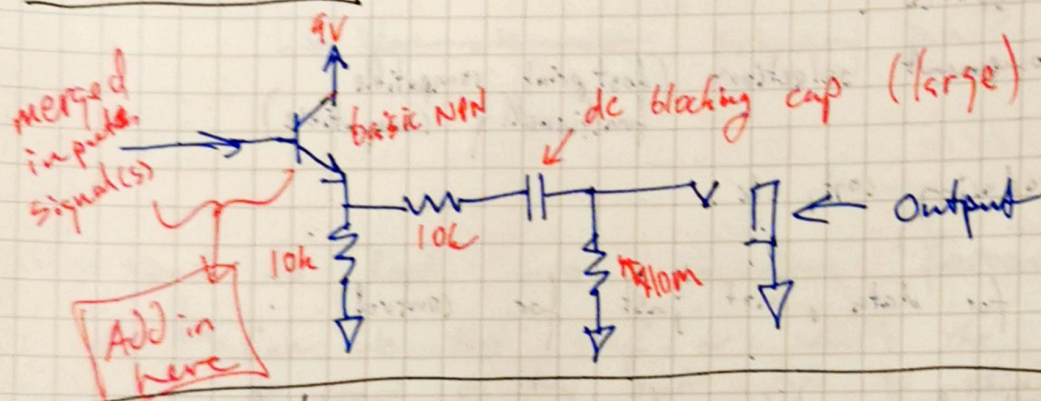 9V
merged
signal(s)
basic NPN
dc blocking cap (large)
10k
10k
10m
Output
Add in
here